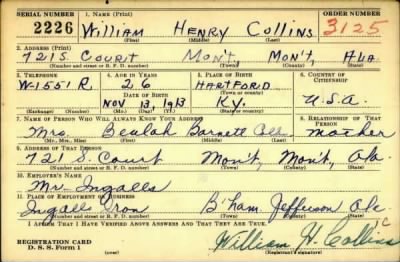 SERIAL NUMBER 1. NAME (Print) ORDER NUMBER
2226 William Henry Collins 3125
(First) (Middle) (Last)
2. ADDRESS (Print)
721 S. Court Mon't, Mon't, Ala
(Number and street or R. F. D. number) (Town) (County) (State)
3. TELEPHONE 4. AGE IN YEARS 5. PLACE OF BIRTH 6. COUNTRY OF CITIZENSHIP
W-1551 R. 26 Hartford
DATE OF BIRTH (Town or county)
Nov 13, 1913 Ky. U.S.A.
(Exchange) (Number) (Mo.) (Day) (Yr.) (State or country)
7. NAME OF PERSON WHO WILL ALWAYS KNOW YOUR ADDRESS 8. RELATIONSHIP OF THAT PERSON
Mrs. Beulah Barnett mother
(Mr., Mrs., Miss) (First) (Middle) (Last)
9. ADDRESS OF THAT PERSON
721 S. Court Mont, Mont, Ala.
(Number and street or R. F. D. number) (Town) (County) (State)
10. EMPLOYER'S NAME
Mr. Ingalls
11. PLACE OF EMPLOYMENT OR BUSINESS
Ingalls Iron B'ham. Jefferson Ala.
(Number and street or R. F. D. number) (Town) (County) (State)
I AFFIRM THAT I HAVE VERIFIED ABOVE ANSWERS AND THAT THEY ARE TRUE.
REGISTRATION CARD
D. S. S. Form 1 William H. Collins
(Registrant's signature)